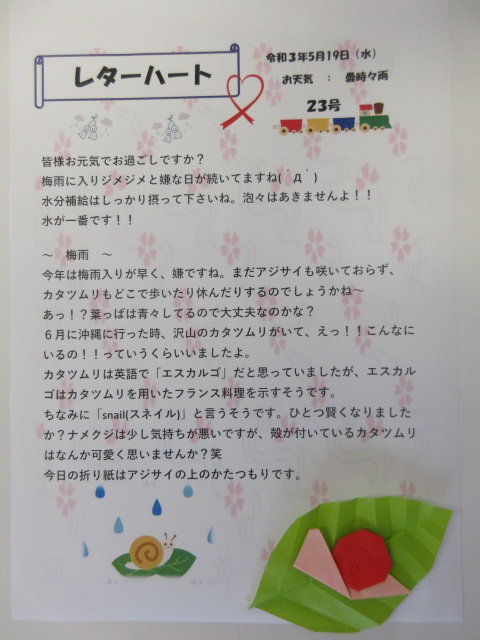 レターハート
令和３年5月19日（水）
お天気　：　曇時々雨
23号
皆様お元気でお過ごしですか？
梅雨に入りジメジメと嫌な日が続いてますね(´Д｀)
水分補給はしっかり摂って下さいね。泡々はあきませんよ！！
水が一番です！！
～　梅雨　～
今年は梅雨入りが早く、嫌ですね。まだアジサイも咲いておらず、
カタツムリもどこで歩いたり休んだりするのでしょうかね～
あっ！？葉っぱは青々してるので大丈夫なのかな？
６月に沖縄に行った時、沢山のカタツムリがいて、えっ！！こんなに
いるの！！っていうくらいいましたよ。
カタツムリは英語で「エスカルゴ」だと思っていましたが、エスカル
ゴはカタツムリを用いたフランス料理を示すそうです。
ちなみに『snail(スネイル)』と言うそうです。ひとつ賢くなりました
か？ナメクジは少し気持ちが悪いですが、殻が付いているカタツムリ
はなんか可愛く思いませんか？笑
今日の折り紙はアジサイの上のかたつもりです。